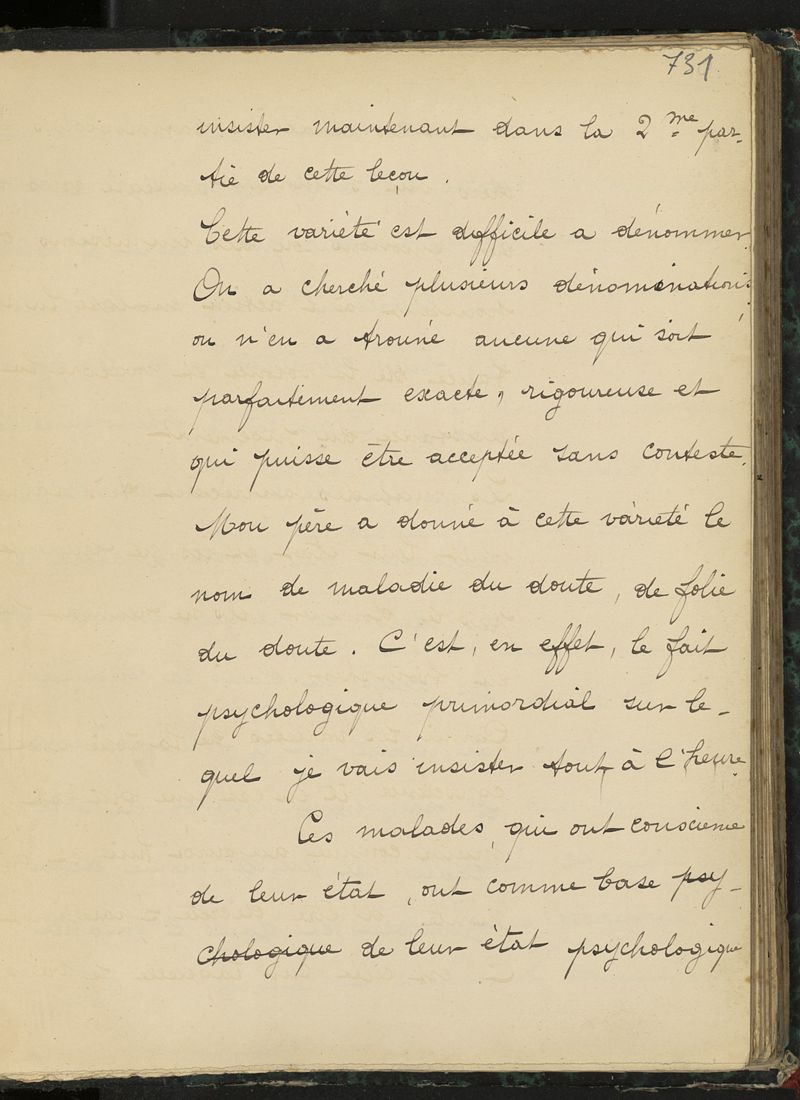 731
insister maintenant dans la 2me par-
tie de cette leçon.
Cette variété est difficile a dénommer.
On a cherché plusieurs dénominations,
on n'en a trouvé aucune qui soit
parfaitement exacte, rigoureuse et
qui puisse être acceptée sans conteste.
Mon père a donné à cette variété le
nom de maladie du doute, de folie
du doute. C'est, en effet, le fait
psychologique primordial sur le-
quel je vais insister tout à l'heure.
Ces malades, qui ont conscience
de leur état, ont comme base psy-
chologique de leur état psychologique